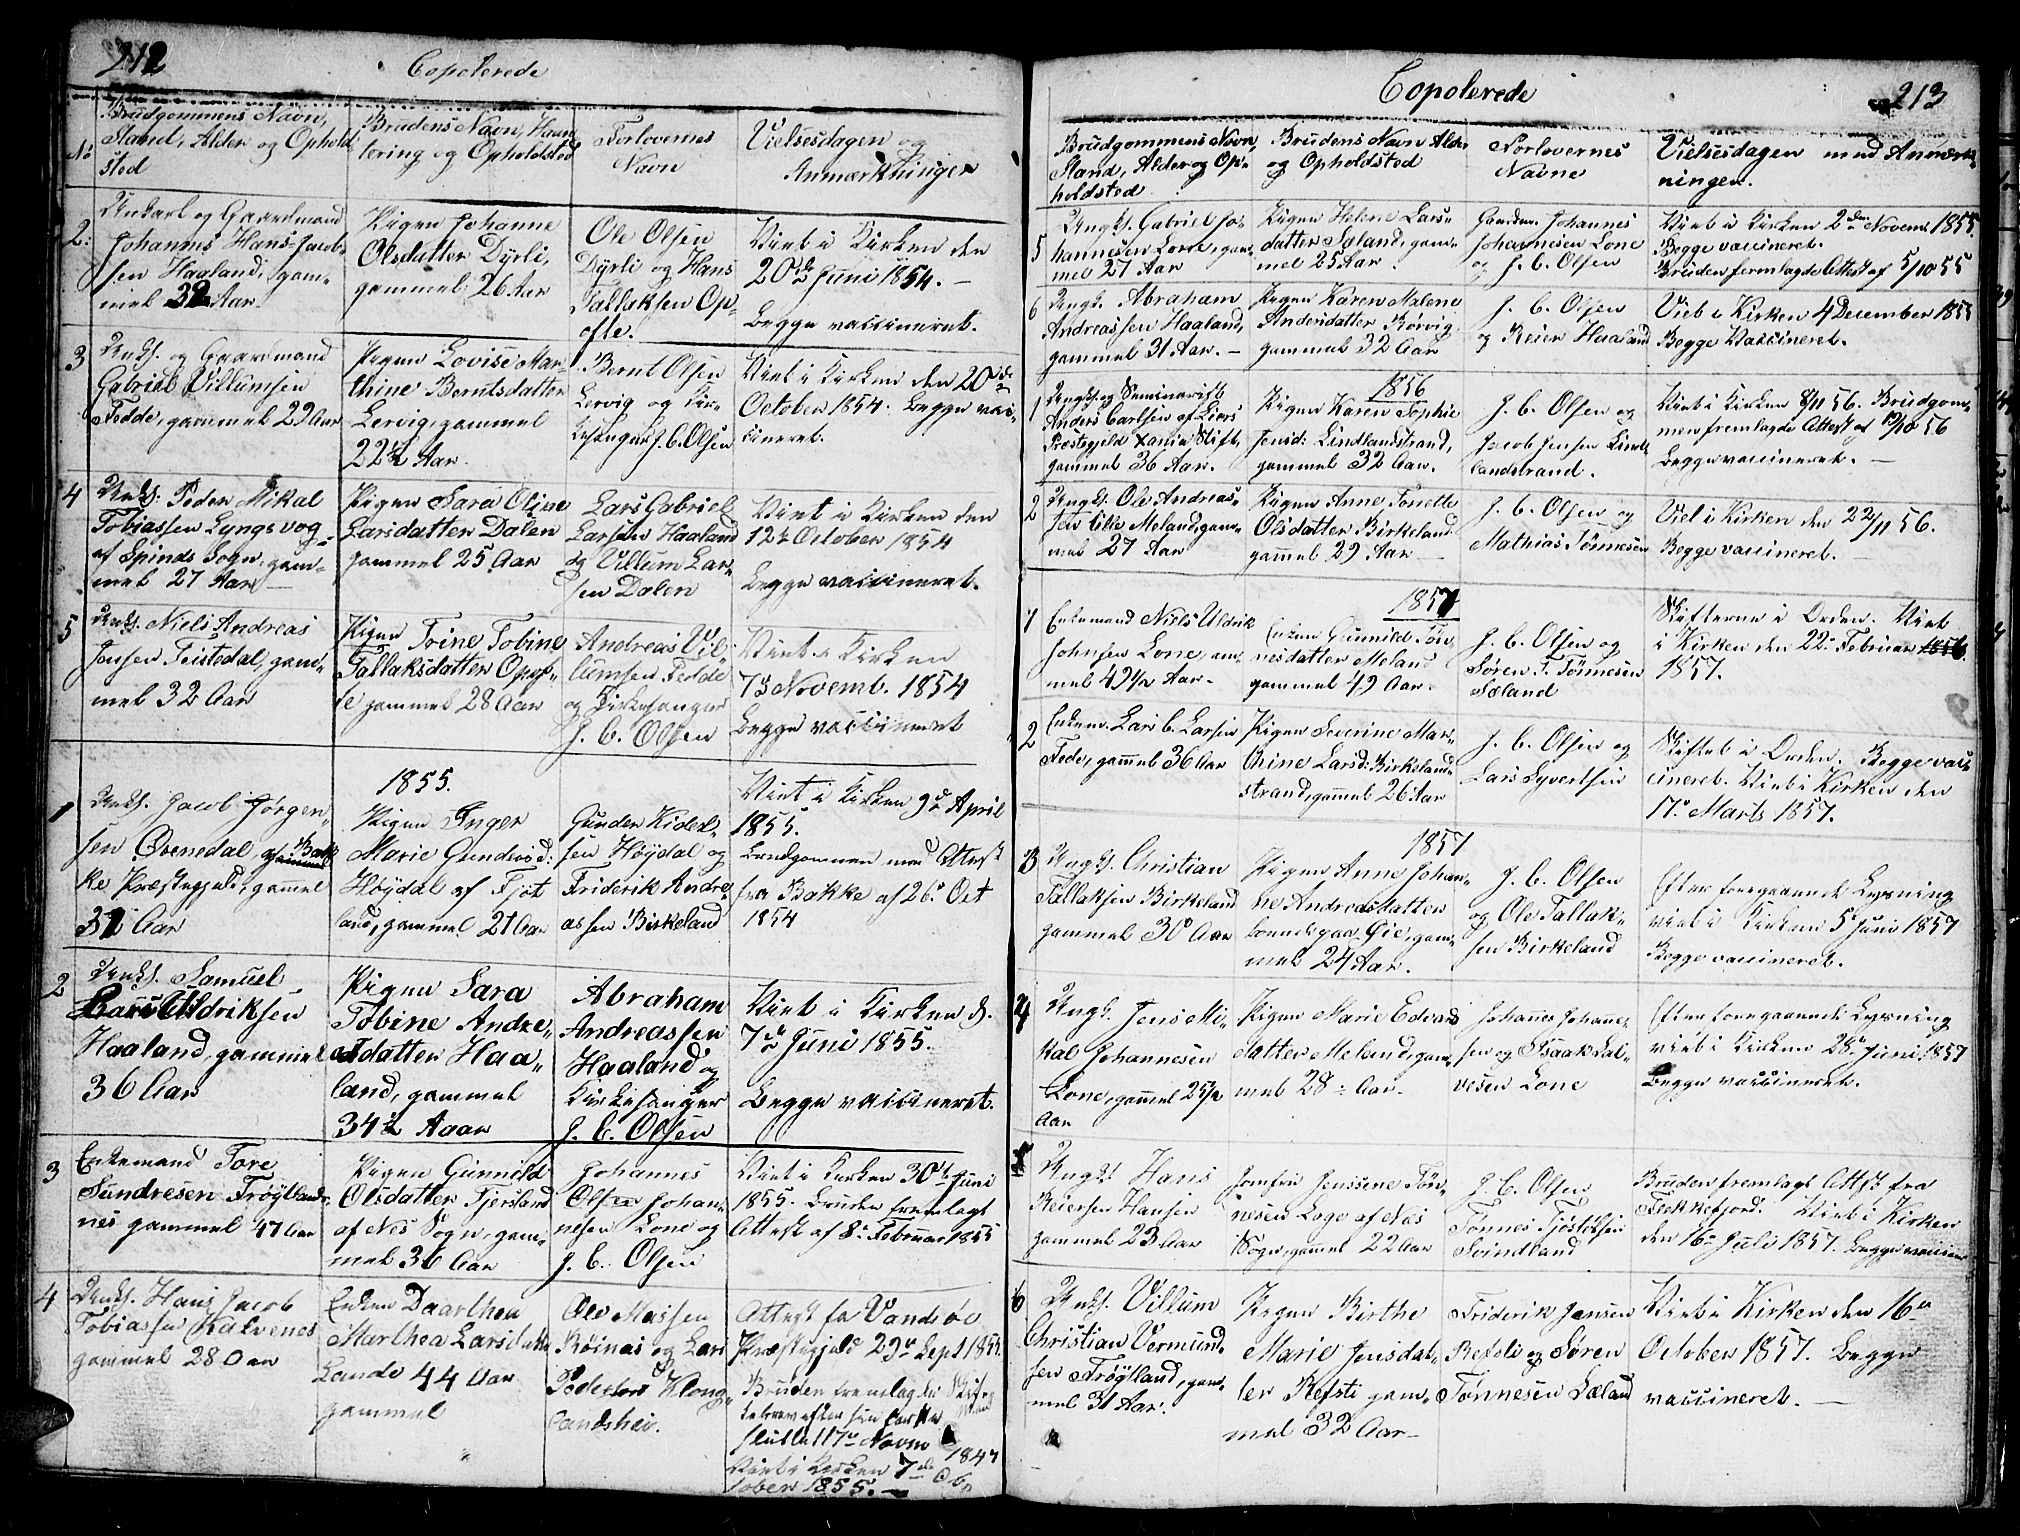 212
Copolerede
No
Brudgommens Navn,
Stand, Alder og Ophold
sted
Brudens Navn, Haan
tering og Opholdsted
Forlovernes
Navn
Vielsesdagen og
Anmærkninger
2:
Unkarl og Gaardmand
Johannes Hans Jacob-
sen Haaland, gam-
mel 32 Aar
Pigen Johanne
Olsdatter Dyrli,
gammel 26 Aar
Ole Olsen
Dyrli og Hans
Tallaksen Op-
ofte.
Viet i Kirken den
20de Juni 1854. —
Begge vaccineret.
3
Unks. og Gaardmand
Gabriel Villumsen
Fedde, gammel 29 Aar
Pigen Lovise Mar-
thine Berntsdatter
Lervig, gammel
22½ Aar
Bernt Olsen
Lervig og Kir-
kesanger J. C. Olsen
Viet i Kirken den 20de
October 1854. Begge vac-
cineret.
4
Unks. Peder Mikal
Tobiassen Lyngsvog
af Spinds Sogn, gam-
mel 27 Aar
Pigen Sara Oline
Larsdatter Dalen
gammel 25 Aar
Lars Gabriel
Larsen Haaland
og Villum Lar-
sen Dalen
Viet i Kirken den
12te October 1854
Begge vaccineret.
5
Unks. Niels Andreas
Jensen Feistedal, gam-
mel 32 Aar
Pigen Trine Tobine
Tallaksdatter Opof-
te gammel 28 Aar
Andreas Vil-
lumsen Fedde
og Kirkesanger
J. C. Olsen
Viet i Kirken
7de Novemb. 1854
Begge vaccineret
1855.
1
Unks. Jacob Jørgen-
sen Øvenedal, af Bak-
ke Præstegjeld, gammel
31 Aar
Pigen Inger
Marie Gundersd:
Høydal af Fjot
land, gammel 21 Aar
Gunder Kidel-
sen Høydal og
Friderik Andre-
assen Birkeland
Viet i Kirken 9de April
1855.
Brudgommen med Attest
fra Bakke af 26de Oct
1854
2
Unks. Samuel
Lars Uldriksen
Haaland, gammel
36 Aar
Pigen Sara
Tobine Andre-
asdatter Haa-
land, gammel
34½ Aaar
Abraham
Andreassen
Haaland og
Kirkesanger
J. C. Olsen
Viet i Kirken d.
7de Juni 1855.
Begge vaccineret.
3
Enkemand Tore
Sundresen Trøytlands
nes gammel 47 Aar
Pigen Gunnild
Olsdatter Fjersland
af Nes Sogn, gam-
mel 36 Aar
Johannes
Olsen Johan-
nesen Lone og
J. C. Olsen
Viet i Kirken 30te Juni
1855. Bruden fremlagt
Attest af 8de Februar 1855
4
Unks. Hans Jacob
Tobiassen Kalvenes
gammel 28 Aar
Enken Daarthea
Marthea Larsdatter
Lande 44 Aar
gammel
Ole Massen
Røinas og Lars
Pedersen Klong-
landshei.
Attest fra Vandsøe
Præstegjeld 29de Sept 1855.
Bruden fremlagde Skif
tebrev efter sin første Mand
sluttet 17de Novm 1847
Viet i Kirken 7de Oc-
tober 1855. —
Copolerede
213
Brudgommens Navn,
Stand, Alder og Op-
holdsted
Brudens Navn Alder
og Opholdsted
Forlovernes
Navne
Vielsesdagen med Anmærk-
ninger.
5
Ungk. Gabriel Jo-
hannesen Lone, gam-
mel 27 Aar
Pigen Helene Lars-
datter Sæland, gam-
mel 25 Aar
Gaardm. Johannes
Johannesen Lone
og J. C. Olsen
Viet i Kirken 2den Novem. 1855.
Begge vaccineret.
Bruden fremlagde Attest af 5/10 55
6
Ungk. Abraham
Andreassen Haaland,
gammel 31 Aar. —
Pigen Karen Malene
Andersdatter Rørvig
gammel 32 Aar
J. C. Olsen
og Reier Haaland
Viet i Kirken 4 December 1855
Begge Vaccineret.
1856
1
Ungk. og Seminarist
Anders Carlsen af Liers
Prestegjeld Xania Stift,
gammel 36 Aar.
Pigen Karen Sophie
Jensd: Lindlandstrand,
gammel 32 Aar.
J. C. Olsen og
Jacob Jensen Lind-
landstrand.
Viet i Kirken 8/11 56. Brudgom-
men fremlagde Attest af 19/10 56
Begge vaccineret. —
2
Ungk. Ole Andreas-
sen Lille Meland, gam-
mel 27 Aar
Pigen Anne Tonette
Olsdatter Birkeland
gammel 29 Aar
J. C. Olsen og
Mathias Tønnesen
Viet i Kirken den 22/11 56.
Begge vaccineret.
1857
1
Enkemand Niels Uldrik
Johnsen Lone, gam-
mel 49½ Aar.
Enken Gunnild Tøn-
nesdatter Meland
gammel 49 Aar.
J. C. Olsen og
Søren T. Tønnesen
Sæland
Skifterne i Orden. Viet
i Kirken den 22de Februar 1856.
1857.
2
Enkem. Lars C. Larsen
Fede, gammel 36 Aar
Pigen Severine Mar-
thine Larsd: Birkeland-
strand, gammel 26 Aar
J. C. Olsen og
Lars Syvertsen
Skiftet i Orden. Begge vac-
cineret. Viet i Kirken den
17de Marts 1857.
1857
3
Ungk. Christian
Tallaksen Birkeland
gammel 30 Aar
Pigen Anne Johan-
ne Andreasdatter
boende paa Øie, gam-
mel 24 Aar.
J. C. Olsen
og Ole Tallak-
sen Birkeland
Efter foregaaende Lysning
viet i Kirken 5te Juni 1857
Begge vaccineret.
4
Ungk. Jens Mi-
kal Johannesen
Lone, gammel 25½
Aar
Pigen Marie Edvars
datter Meland, gam-
mel 28 Aar.
Johannes Johanne-
sen og Isaak Sal-
vesen Lone
Efter foregaaende Lysning
viet i Kirken 28de Juni 1857
Begge vaccineret.
5
Ungk. Hans
Reiersen Hansen
gammel 23 Aar
Jomfru Jenssene Tøn-
nesen Loge af Nes
Sogn, gammel 22 Aar
J. C. Olsen
Tønnes Tjøstelsen
Svindland
Bruden fremlagt Attest fra
Flekkefjord. Viet i Kirken
den 16de Juli 1857. Begge vaccineret
6
Unks. Villum
Christian Vermund-
sen Trøytland, gam-
mel 31 Aar.
Pigen Birthe
Marie Jensdat-
ter Refsti gam-
mel 32 Aar
Friderik Jansen
Refsti og Søren
Tønnesen Sæland
Viet i Kirken den 16de
October 1857. Begge
vaccineret. —